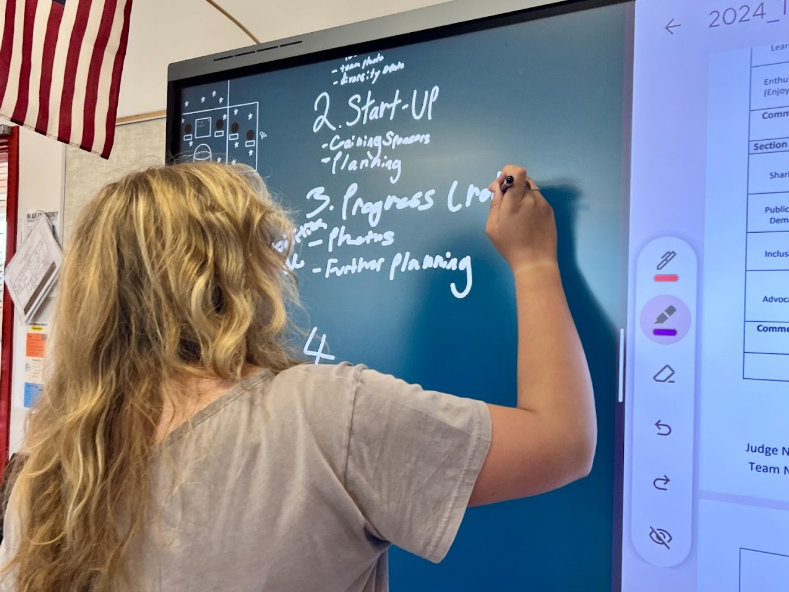 - team photo
- diversity
2. Start-UP
- Gaining Sponsors
- Planning
3. Progress (
- Photos
- Further planning
4
2024_
Lear
Enthu
(Enjoy
Comm
Section
Shar
Public
Dem
Inclus
Advoca
Comme
Judge N
Team N